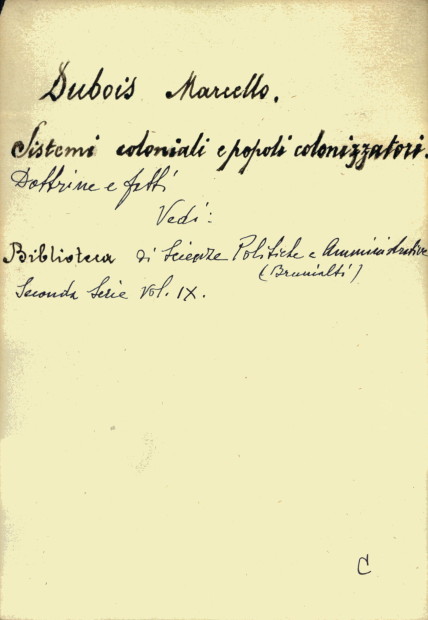 Dubois Marcello.
Sistemi coloniali e popoli colonizzatori.
Dottrine e fatti
Vedi:
Biblioteca di Scienze Politiche e Amministrative
(Brunialti)
Seconda Serie Vol. IX.
C